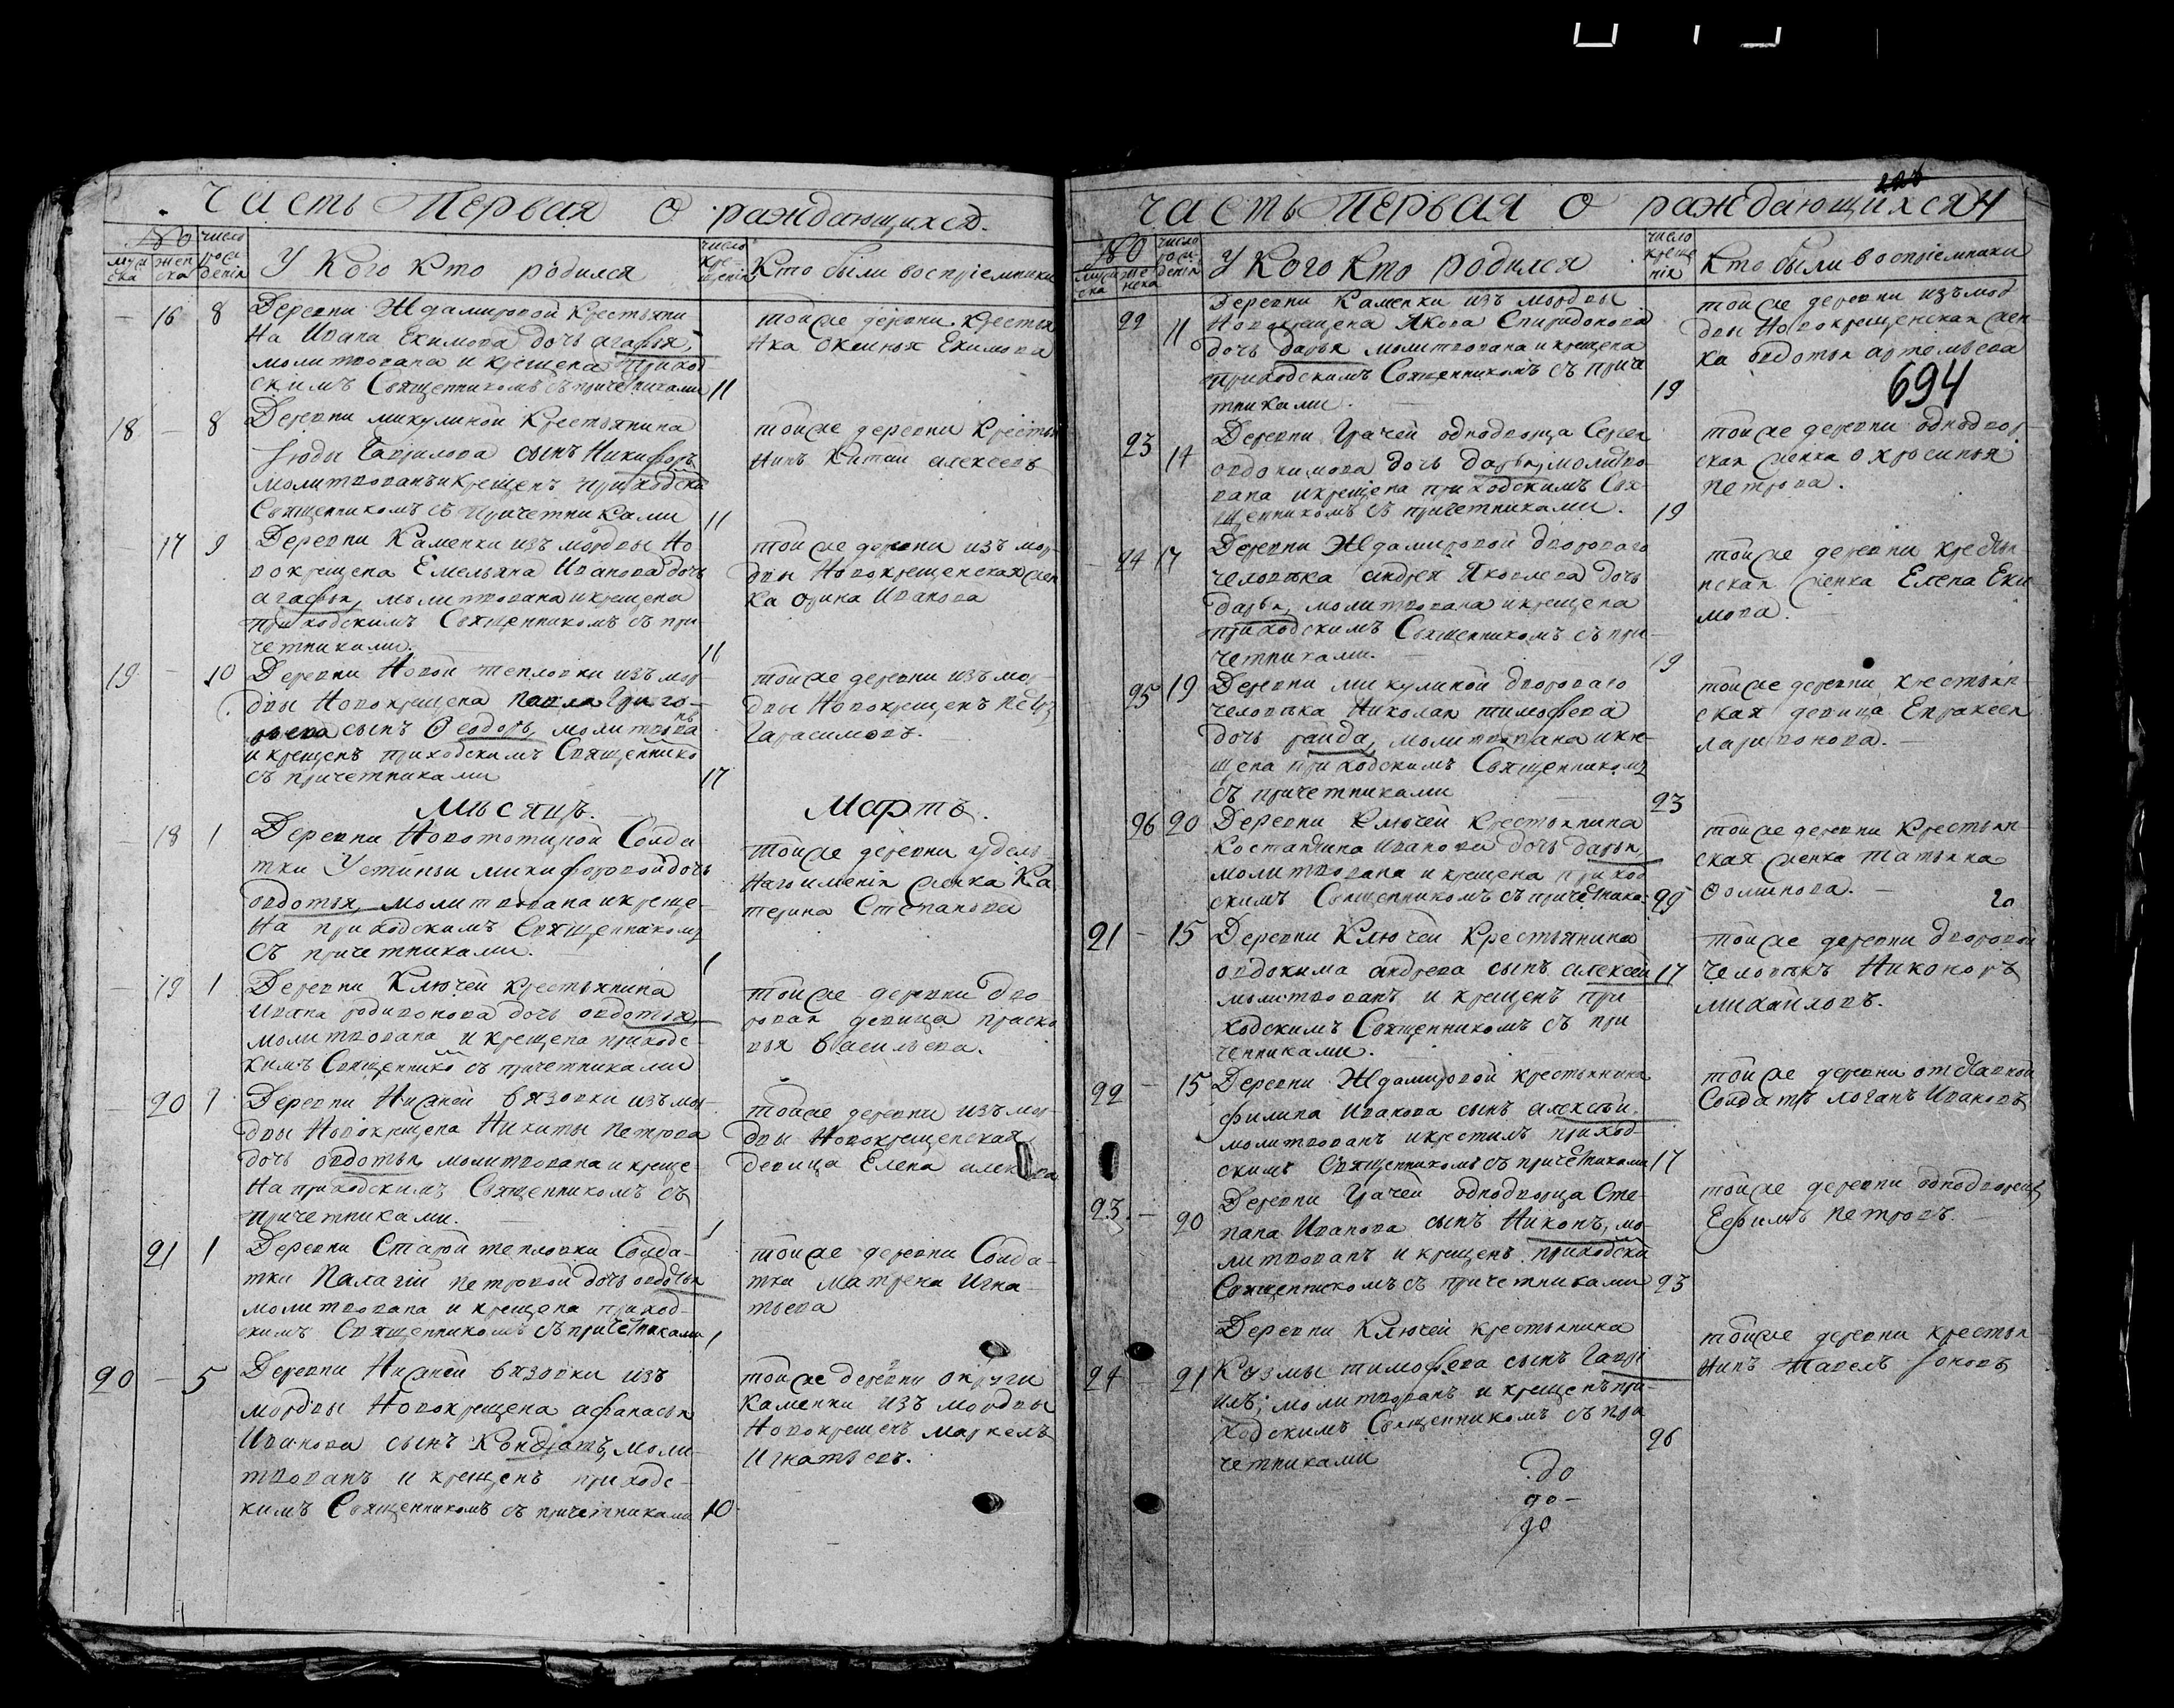 Часть Первая о раждающихся.
№
муже
ска
жен
ска
число
рож
денія
У Кого Кто родился
число
кре-
щенія
Кто были воспріемники
— 16 8 Деревни Ждамировой Крестьяни
на Ивана Екимова дочь агафья,
молитвована и крещена приход
скимъ Священникомъ съ причетниками 11
тойже деревни Крестья
нка Оксинья Екимова
18 — 8 Деревни микулиной Крестьянина
Гаврилова сынъ Никифоръ
молитвованъ и крещенъ приходски
Священникомъ съ Причетниками 11
тойже деревни Крестья
нинъ алексеевъ
17 9 Деревни Каменки изъ мордвы Но
вокрещена Емельяна Иванова дочь
агафья, молитвована и крещена
приходскимъ Священникомъ съ при
четниками. 11
тойже деревни изъ мор
двы Новокрещенская жен
ка Орина Иванова
19 — 10 Деревни Новой тепловки изъ мор
двы Новокрещена Павла Григо-
рьева сынъ Ѳеодоръ, молитвова
нъ
и крещенъ приходскимъ Священнико
съ причетниками 17
тойже деревни изъ мор-
двы Новокрещенъ Петръ
Гарасимовъ.
Мѣсяцъ. Мартъ.
— 18 1 Деревни Солда
тки Устиньи микифоровой дочь
овдотья, молитвована и креще-
на приходскимъ Священникомъ
съ причетниками. 1
тойже деревни удель-
наго именія женка Ка
терина Степанова
— 19 1 Деревни Ключей крестьянина
Ивана родионова дочь овдотья,
молитвована и крещена приходс-
кимъ Священнико съ причетниками
тойже деревни дво
ровая девица праско
вья васильева.
— 20 1 Деревни Нижней вязовки изъ мор-
двы Новокрещена Никиты Петрова
дочь овдотья молитвована и креще-
на приходскимъ Священникомъ съ
причетниками. 1
тойже деревни изъ мор-
двы Новокрещенская
девица Елена
21 1 Деревни Старой тепловки Солда-
тки Палагіи петровой дочь овдотья
молитвована и крещена приход-
скимъ Священникомъ съ причетниками 1
тойже деревни Солда-
тка матрена Игна-
тьева
20 — 5 Деревни Нижней вязовки изъ
мордвы Новокрещена афанасья
Иванова сынъ Кондратъ, моли-
твованъ и крещенъ приходс-
кимъ Священникомъ съ причетниками 10
тойже деревни округи
Каменки изъ мордвы
Новокрещенъ маркелъ
Игнатьевъ.
Часть Первая о раждающихся 4
№
муже
ска
же
нска
число
рож
денія
У Кого Кто родился
число
креще
нія
Кто были воспріемники
22 11 Деревни Каменки изъ мордвы
Новокрещена Якова Спиридонова
дочь дарья молитвована и крещена
приходскимъ Священникомъ съ приче
тниками. 19
тойже деревни изъ мор
двы Новокрещенская жен
ка овдотья артемьева
694
23 14 Деревни Грачей однодворца Сергея
овдокимова дочь дарья, молитво-
вана и крещена приходскимъ Свя-
щенникомъ съ причетниками. 19
тойже деревни однодвор-
ская женка офросинья
петрова.
24 17 Деревни Ждамировой двороваго
человѣка андрея Яковлева дочь
дарья, молитвована и крещена
приходскимъ Священникомъ съ при-
четниками. 19
тойже деревни крестья
нская женка Елена Еки
мова.
25 19 Деревни микулиной двороваго
человѣка Николая тимофеева
дочь раида, молитвована и кре-
щена приходскимъ Священникомъ
съ причетниками 23
тойже деревни крестьян-
ская девица Епраксея
ларивонова.
26 20 Деревни Ключей крестьянина
Костантина Иванова дочь дарья,
молитвована и крещена приход
скимъ Священникомъ съ причетника- 25
тойже деревни Крестьян-
ская женка татьяна
Фоминова.
21 — 15 Деревни Ключей Крестьянина
овдокима андреева сынъ алексей 17
молитвованъ и крещенъ при
ходскимъ Священникомъ съ при
четниками.
тойже деревни дворовой
человѣкъ Никоноръ
михайловъ.
22 — 15 Деревни Ждамировой крестьянина
филипа Иванова сынъ алексѣй.
молитвованъ и крестилъ приход-
скимъ Священникомъ съ причетниками 17
тойже деревни отставной
Солдатъ логанъ Ивановъ
23. — 20 Деревни Грачей однодворца Сте-
пана Иванова сынъ Никонъ, мо-
литвованъ и крещенъ приходски
Священникомъ съ причетниками 23
тойже деревни однодворецъ
Ефимъ петровъ.
Деревни Ключей крестьянина
24 — 21 Кузмы тимофеева сынъ Гаврі
илъ, молитвованъ и крещенъ при-
ходскимъ Священникомъ съ при
четниками 26
тойже деревни крестья
нинъ Павелъ